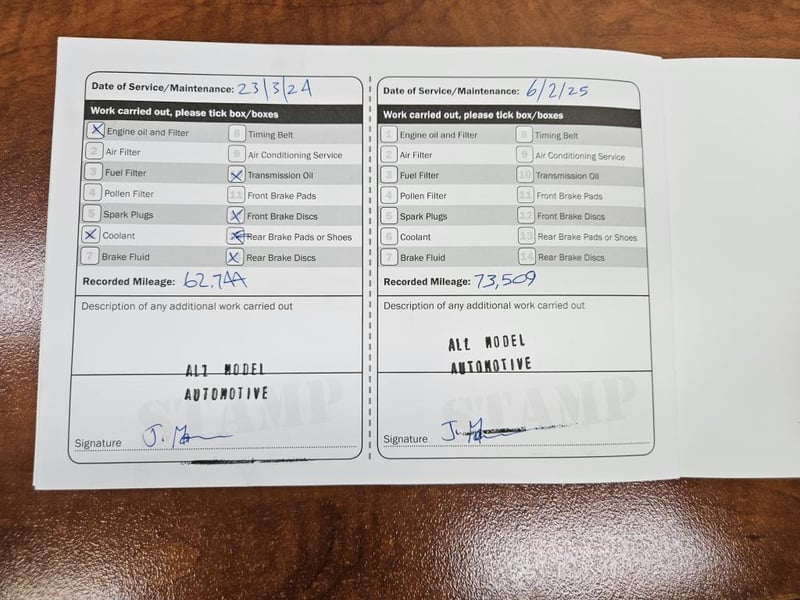 Date of Service/Maintenance: 23/3/24
Work carried out, please tick box/boxes
Engine oil and Filter
8 Timing Belt
2 Air Filter
9 Air Conditioning Service
3 Fuel Filter
Transmission Oil
4 Pollen Filter
11 Front Brake Pads
5 Spark Plugs
Front Brake Discs
Coolant
Rear Brake Pads or Shoes
7 Brake Fluid
Rear Brake Discs
Recorded Mileage: 62,744
Description of any additional work carried out
ALL MODEL
AUTOMOTIVE
STAMP
Signature
Date of Service/Maintenance: 6/2/25
Work carried out, please tick box/boxes
1 Engine oil and Filter
8 Timing Belt
2 Air Filter
9 Air Conditioning Service
3 Fuel Filter
10 Transmission Oil
4 Pollen Filter
11 Front Brake Pads
5 Spark Plugs
12 Front Brake Discs
6 Coolant
13 Rear Brake Pads or Shoes
7 Brake Fluid
14 Rear Brake Discs
Recorded Mileage: 73,509
Description of any additional work carried out
ALL MODEL
AUTOMOTIVE
STAMP
Signature